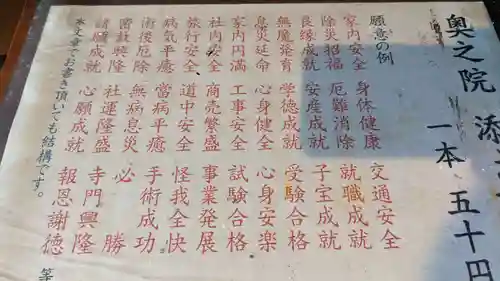 奥之院 添
一本 五十円
願意の例
家内安全 身体健康 交通安全
除災招福 厄難消除 就職成就
良縁成就 安産成就 子宝成就
無魔発育 学徳成就 受験合格
息災延命 心身健全 心身安楽
家内円満 工事安全 試験合格
社内安全 商売繁盛 事業発展
旅行安全 道中安全 怪我全快
病気平癒 当病平癒 手術成功
術後厄除 無病息災 必勝
密教興隆 社運隆盛 寺門興隆
諸願成就 心願成就 報恩謝徳
本文章でお書き頂いても結構です。 等